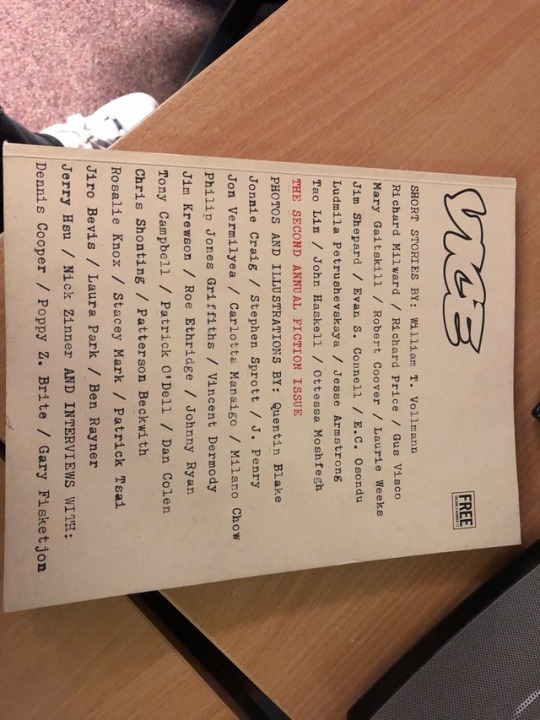 VICE
FREE
SHORT STORIES BY: William T. Vollmann
Richard Milward / Richard Price / Gus Visco
Mary Gaitskill / Robert Coover / Laurie Weeks
Jim Shepard / Evan S. Connell / E.C. Osondu
Ludmila Petrushevskaya / Jesse Armstrong
Tao Lin / John Haskell / Ottessa Moshfegh
THE SECOND ANNUAL FICTION ISSUE
PHOTOS AND ILLUSTRATIONS BY: Quentin Blake
Jonnie Craig / Stephen Sprott / J. Penry
Jon Vermilyea / Carlotta Manaigo / Milano Chow
Philip Jones Griffiths / Vincent Dermody
Jim Krewson / Roe Ethridge / Johnny Ryan
Tony Campbell / Patrick O'Dell / Dan Colen
Chris Shonting / Patterson Beckwith
Rosalie Knox / Stacey Mark / Patrick Tsai
Jiro Bevis / Laura Park / Ben Rayner
Jerry Hsu / Nick Zinner AND INTERVIEWS WITH:
Dennis Cooper / Poppy Z. Brite / Gary Fisketjon